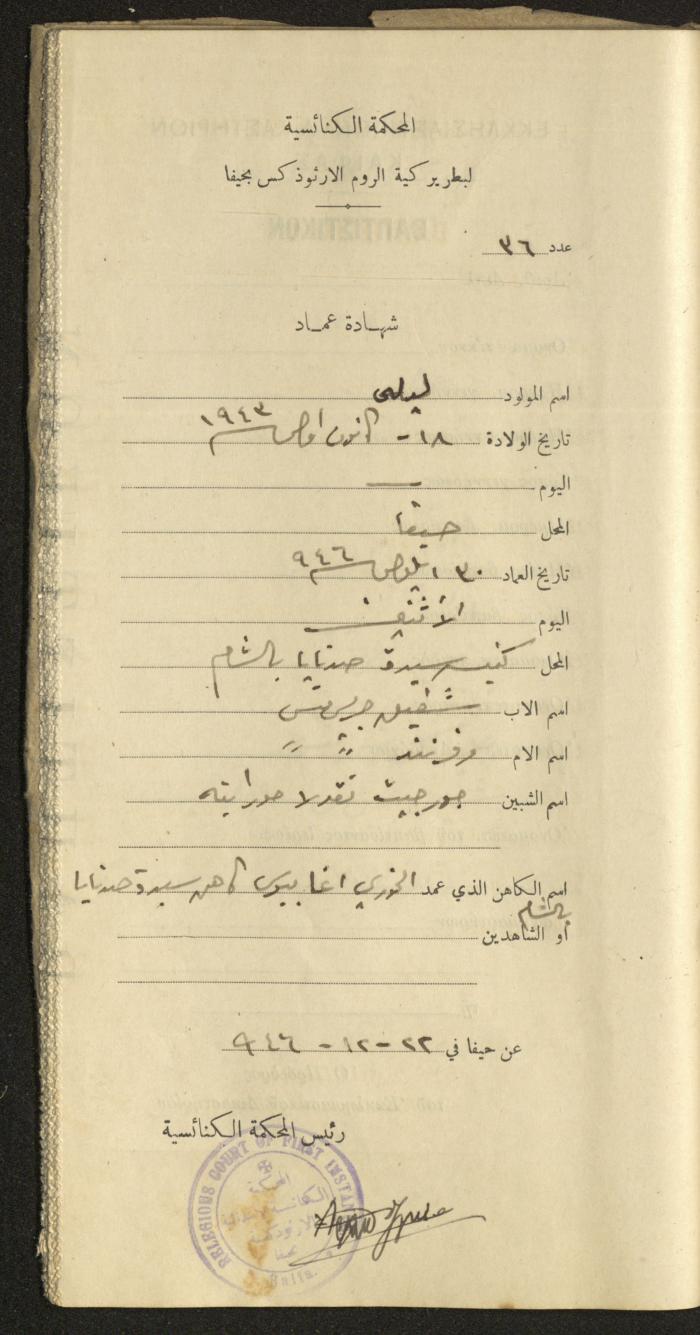 المحكمة الكنائسية
لبطريركية الروم الارثوذكس بحيفا
عدد ٣٦
شهادة عماد
اسم المولود ليلى
تاريخ الولادة ١٨ - كانون اول سنة ١٩٤٣
اليوم —
المحل حيفا
تاريخ العماد ٣٠ ايلول سنة ٩٤٦
اليوم الأثنين
المحل كنيسة سيدة صدنايا بالشام
اسم الاب شفيق جريس
اسم الام وفرنند " " "
اسم الشبين جورجيت نقولا حورانيه
اسم الكاهن الذي عمد الخوري اغابيوس كاهن سيدة صدنايا
بالشام
أو الشاهدين
عن حيفا في ٢٢ - ١٢ - ٩٤٦
رئيس المحكمة الكنائسية
RELEGIOUS COURT OF FIRST INSTAN
المحكمة
الكنائسية
الارثوذكسية
بحيفا